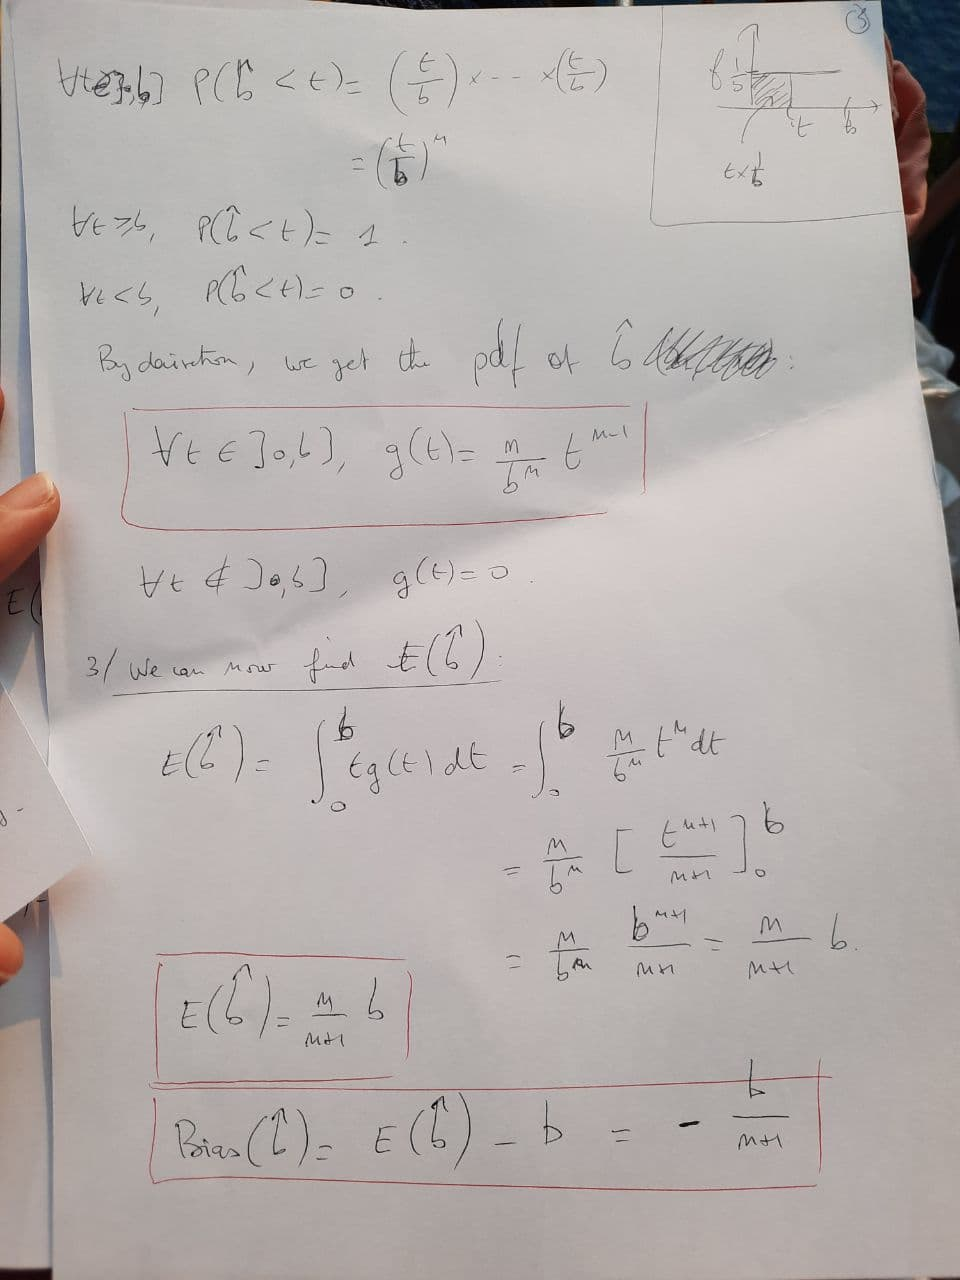 ③
∀t∈]0,b] P(b̂ < t) = (t/b) × --- × (t/b)
= (t/b)^n
f 1/b
t b
t × 1/b
∀t ≥ b, P(b̂ < t) = 1 .
∀t < b, P(b̂ < t) = 0 .
By dairetion, we get the pdf of b̂ :
∀t ∈ ]0,b], g(t) = n/b^n t^(n-1)
∀t ∉ ]0,b], g(t) = 0 .
3/ We can now find E(b̂) :
E(b̂) = ∫_0^b t g(t) dt = ∫_0^b n/b^n t^n dt
= n/b^n [ t^(n+1)/(n+1) ]_0^b
= n/b^n b^(n+1)/(n+1) = n/(n+1) b.
E(b̂) = n/(n+1) b
Bias(b̂) = E(b̂) - b = - b/(n+1)